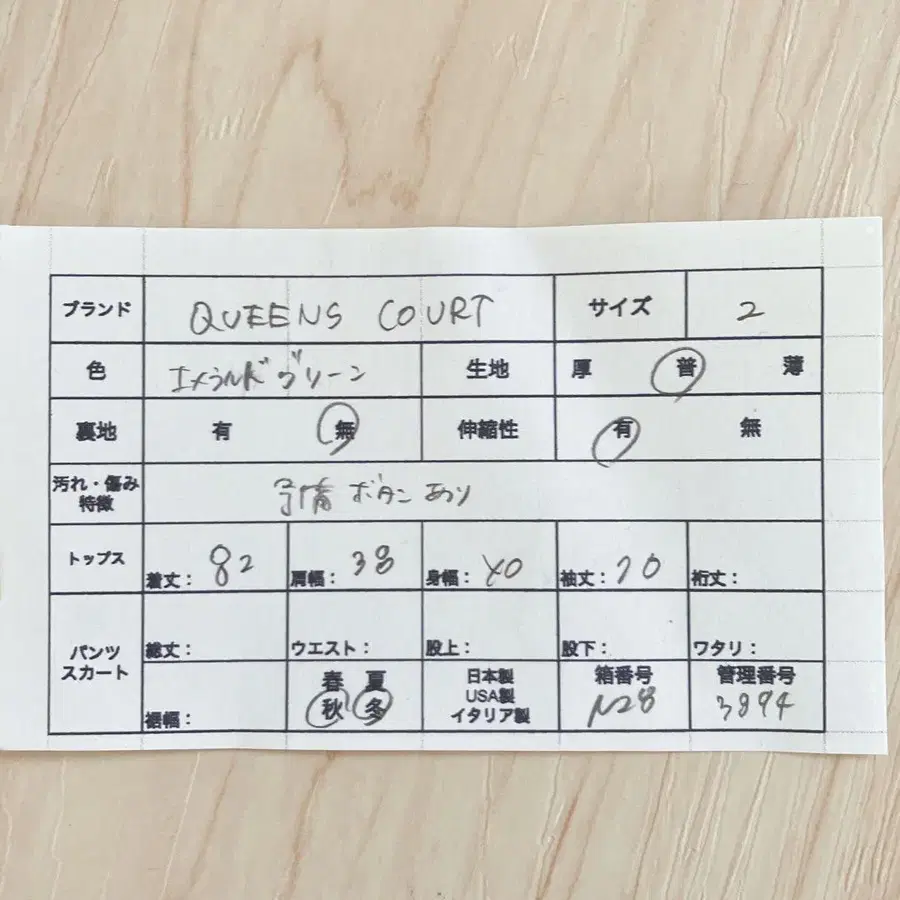 ブランド QUEENS COURT サイズ 2
色 エメラルドグリーン 生地 厚 普 薄
裏地 有 無 伸縮性 有 無
汚れ・傷み
特徴 予備ボタンあり
トップス 着丈： 82 肩幅： 38 身幅： 40 袖丈： 70 裄丈：
パンツ
スカート 総丈： ウエスト： 股上： 股下： ワタリ：
裾幅： 春 夏 秋 冬 日本製 USA製 イタリア製 箱番号 N28 管理番号 3894